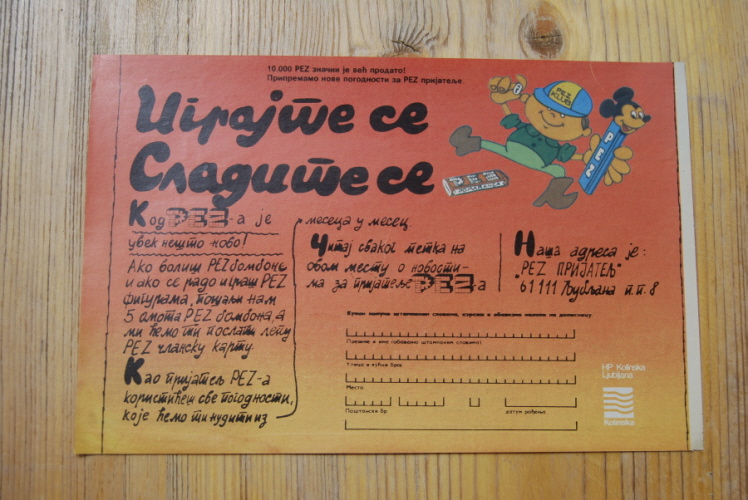 10.000 PEZ значки је већ продато!
Припремамо нове погодности за PEZ пријатеље.
Играјте се
Сладите се
PEZ
KLUB
PEZ
PEZ
Код PEZ-а је
увек нешто ново!
Ако волиш PEZ бомбоне
и ако се радо играш PEZ
фигурама, пошаљи нам
5 омота PEZ бомбона, а
ми ћемо ти послати лепу
PEZ чланску карту.
Као пријатељ PEZ-а
користићеш све погодности,
које ћемо ти нудити из
месеца у месец
Читај сваког петка на
овом месту о новости-
ма за пријатеље PEZ-а
Наша адреса је:
"PEZ ПРИЈАТЕЉ"
61111 Љубљана п.п. 8
Купон попуни штампаним словима, изрежи и обавезно налепи на дописницу.
Презиме и име (обавезно штампаним словима)
Улица и кућни број
Место
Поштански бр
датум рођења
HP Kolinska
Ljubljana
Kolinska